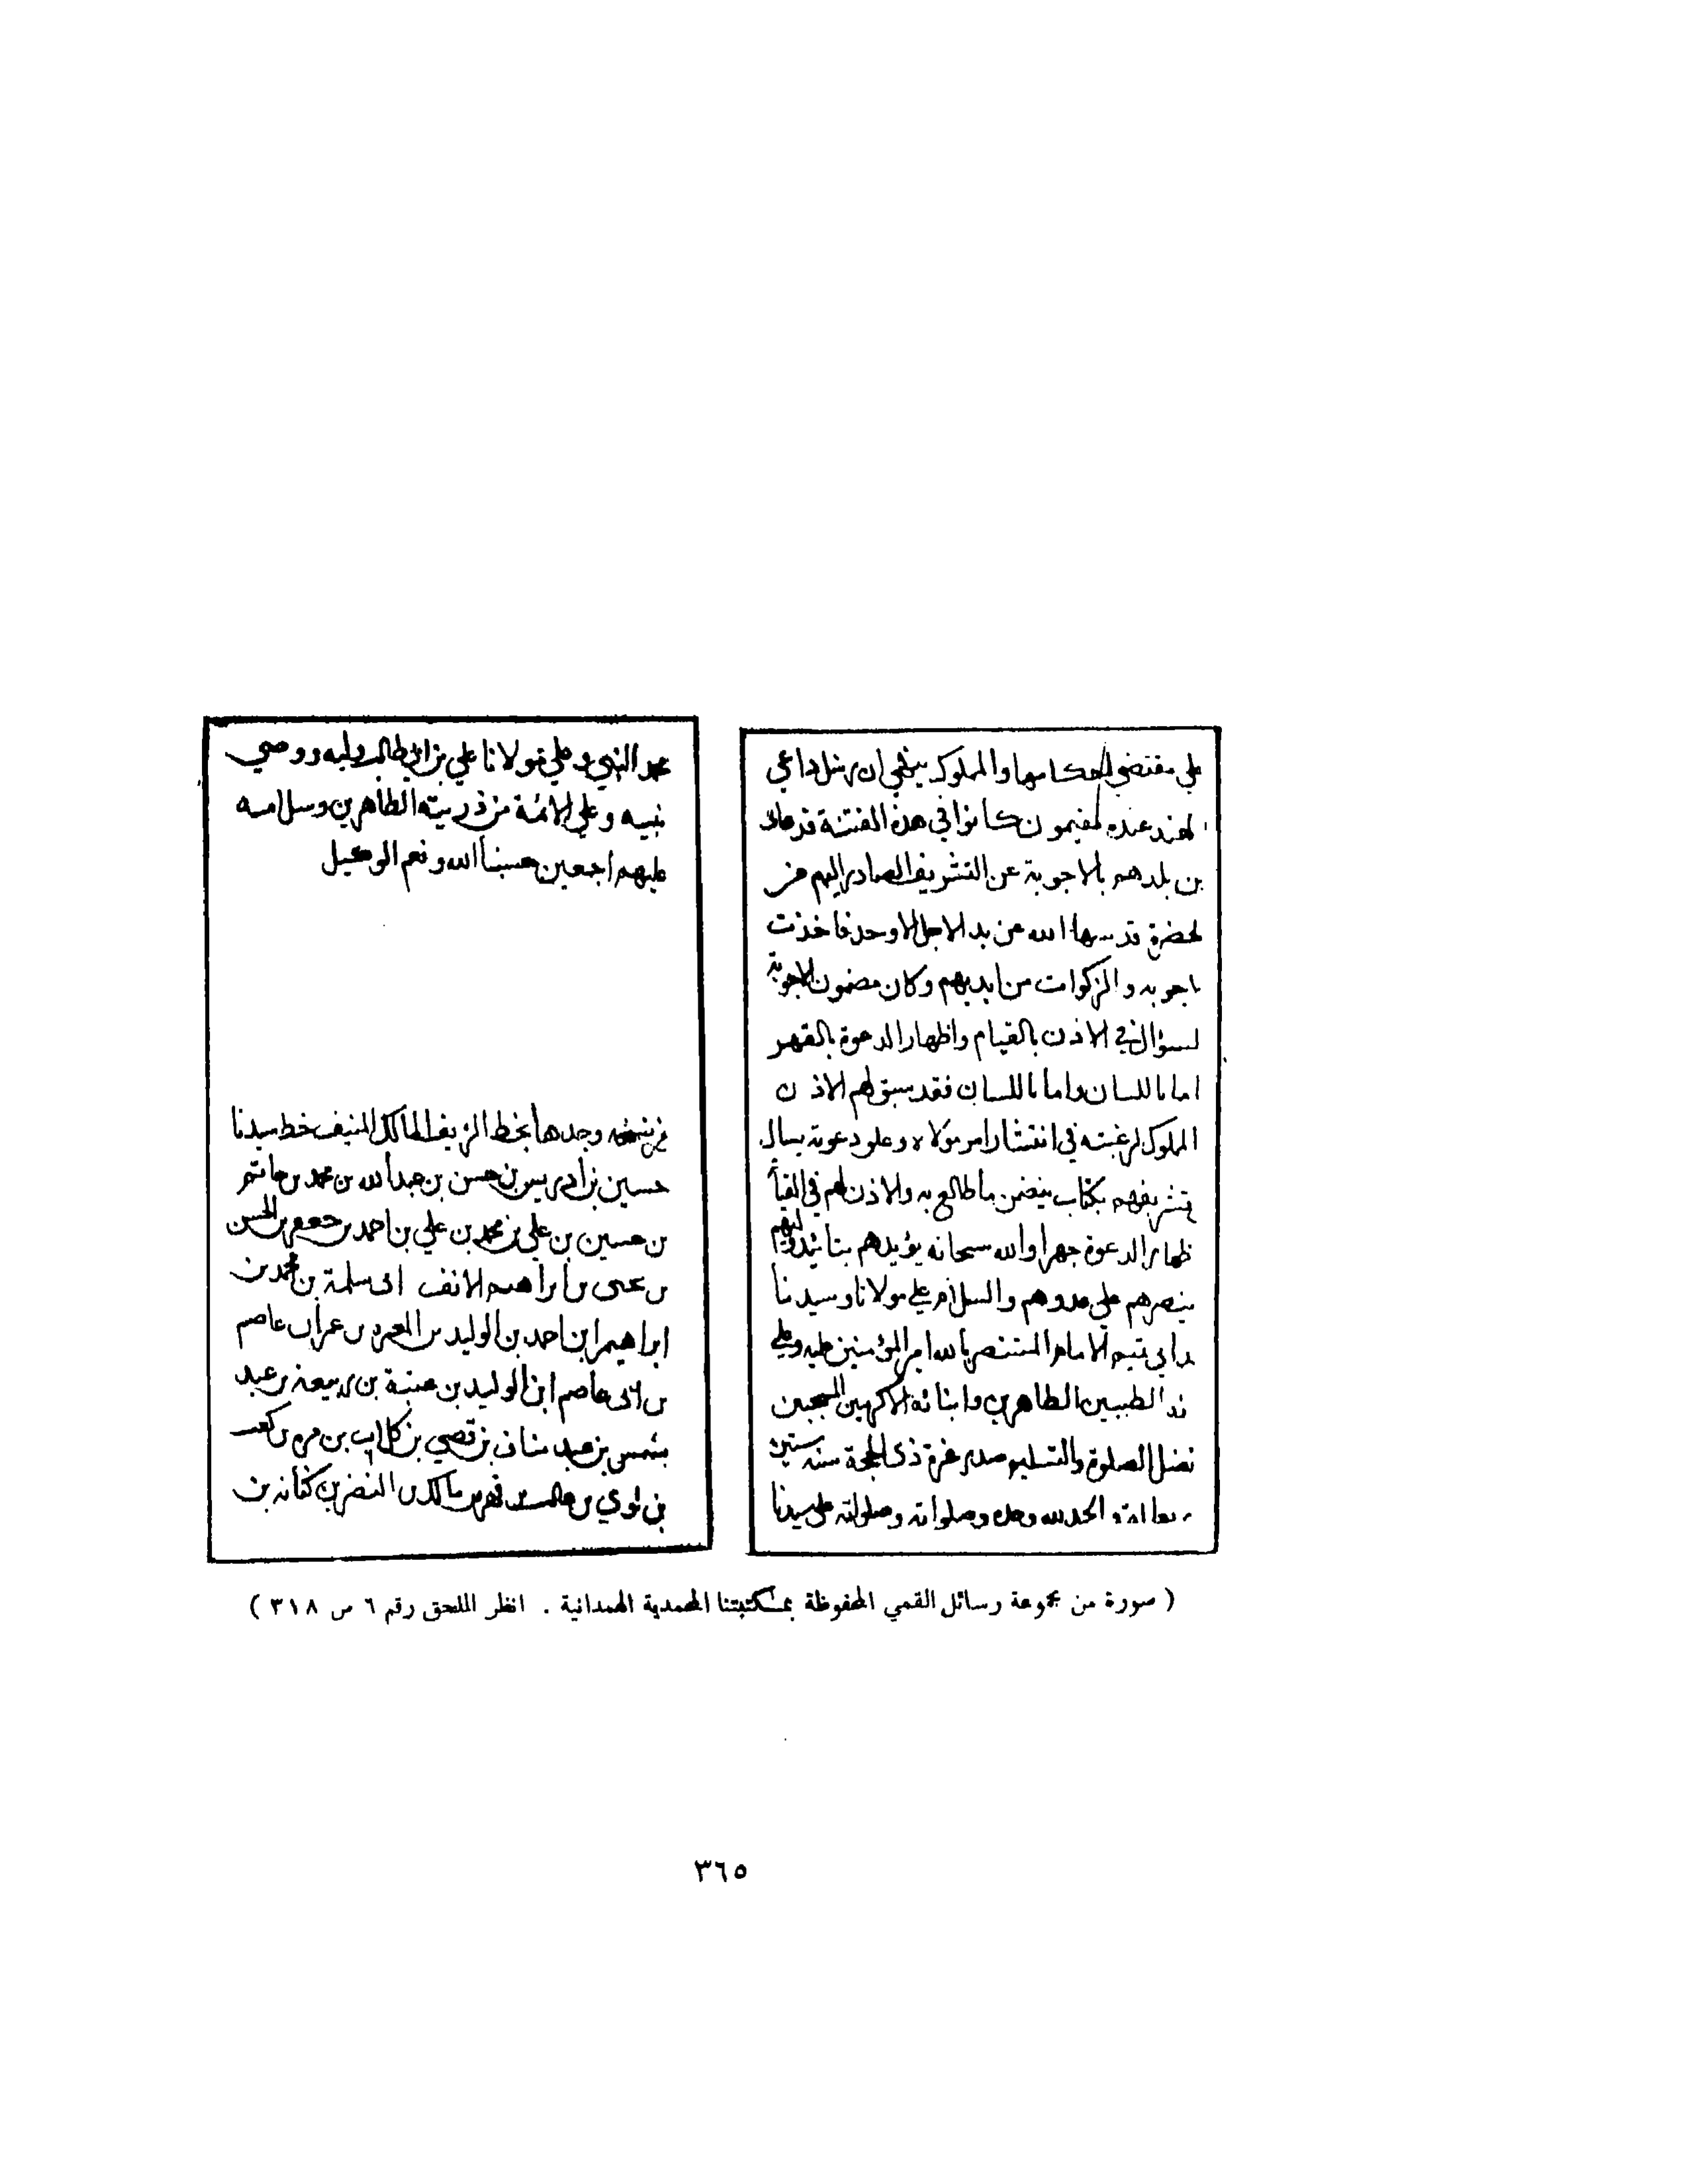 على مقتضى احكامها والمملوك ينهي ان رسل داعي
لهند عنده مقيمون كانوا في هذه الفتنة قد
بن بلدهم بالاجوبة عن التشريف الصادر اليهم من
لحضرة قدسها الله عن يد الاجل الاوحد فاخذت
اجوبه والزكوات من ايديهم وكان مضمون الاجوبة
لسؤال في الاذن بالقيام واظهار الدعوة بالقهر
اما باللسان واما باللسان فقد سبق لهم الاذن
المملوك لرغبته في انتشار امر مولاه وعلو دعوته يسال
تشريفهم بكتاب يتضمن ما طالع به والاذن لهم في القيا
ظهار الدعوة جهرا والله سبحانه يؤيدهم بتائيد وليهم
ينصرهم على عدوهم والسلام على مولانا وسيدنا
الامام المستنصر بالله امير المؤمنين عليه وعلى
الطيبين الطاهرين وابنائه الاكرمين
فضل الصلوة والتسليم صدر غرة ذى الحجة سنه ستين
والحمد لله وحده وصلواته على سيدنا
محمد النبي وعلى مولانا علي بن ابي طالب وليه ووصي
نبيه وعلى الائمة من ذريته الطاهرين وسلامه
عليهم اجمعين حسبنا الله ونعم الوكيل
من نسخه وجدها بخط الشريف المالك المنيف خط سيدنا
حسين بن ادريس بن حسن بن عبد الله بن محمد بن حاتم
بن حسين بن علي بن محمد بن علي بن احمد بن جعفر بن الحسن
بن يحيى بن ابراهيم الانف ابى سلمة بن محمد بن
ابراهيم ابن احمد بن الوليد بن بن عمران عاصم
بن ابى عاصم ابن الوليد بن عتبة بن ربيعه بن عبد
شمس بن عبد مناف بن قصي بن كلاب بن مره بن كعب
بن لوي بن غالب بن فهر بن مالك بن النضر بن كنانه بن
( صورة من مجموعة رسائل القمي المحفوظة بمكتبتنا المحمدية الهمدانية . انظر الملحق رقم ٦ ص ٣١٨ )
٣٦٥